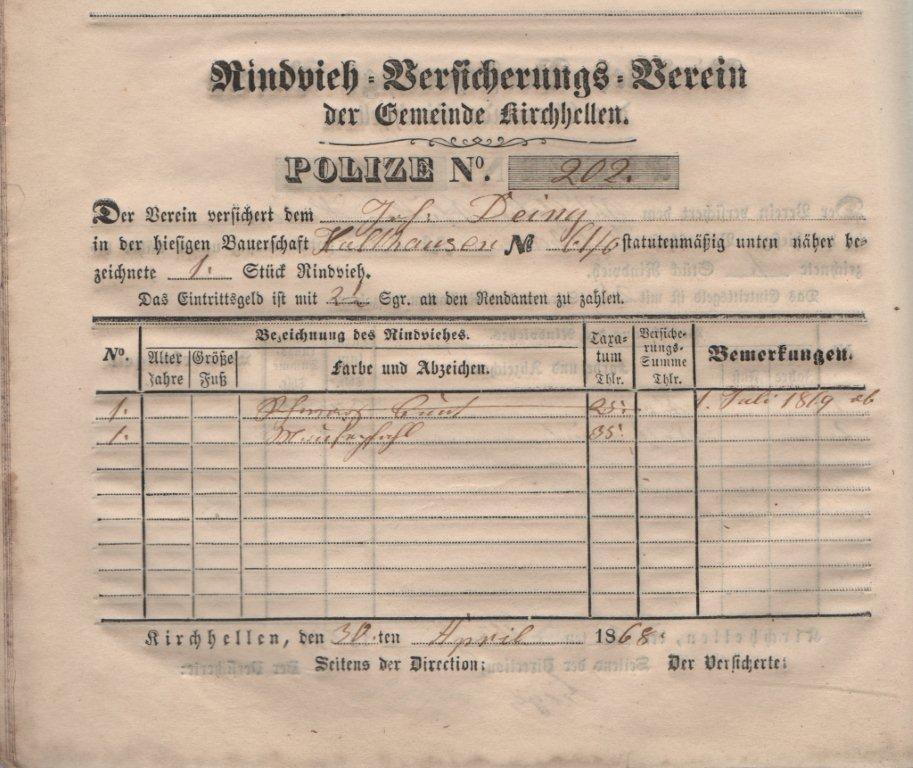 Rindvieh-Versicherungs-Verein
der Gemeinde Kirchhellen.
POLIZE No. 202.
Der Verein versichert dem Joh: Deing
in der hiesigen Bauerschaft Holthausen № 61/6 statutenmäßig unten näher be-
zeichnete 1. Stück Rindvieh.
Das Eintrittsgeld ist mit 2½ Sgr. an den Rendanten zu zahlen.
No. Bezeichnung des Rindviehes. Taxa-tum Thlr. Versiche-rungs-Summe Thlr. Bemerkungen.
Alter Jahre Größe Fuß Farbe und Abzeichen.
1. Schwarz bunt 25. 1. Juli 1869 ab
1. 35.
Kirchhellen, den 30. ten April 1868.
Seitens der Direction: Der Versicherte: